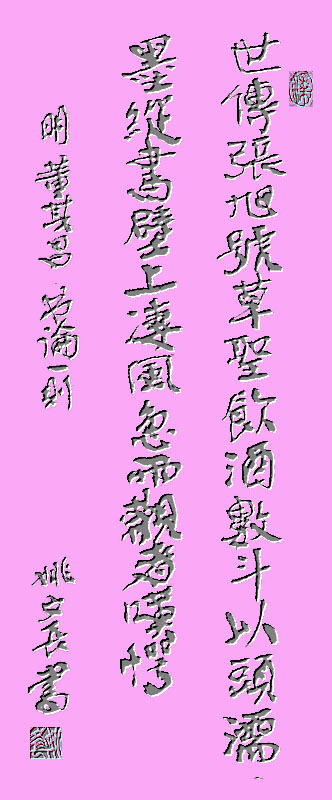 世傳張旭號草聖飲酒數斗以頭濡
墨縱書壁上凄風急雨觀者嘆愕
明董其昌書論一則
姚文長書